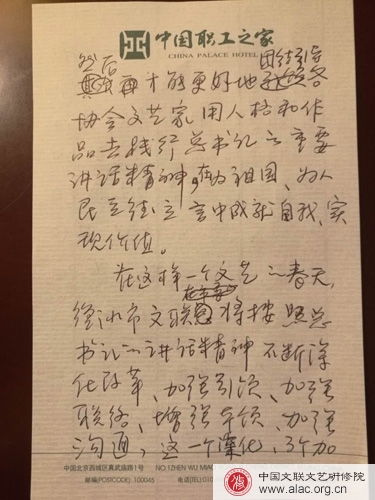 中国职工之家
CHINA PALACE HOTEL
然后 团结引导
再才能更好地 各
协会文艺家用人格和作
品去践行总书记之重要
讲话精神,在为祖国、为人
民立德立言中成就自我、实
现价值。
在这样一个文艺的春天,
在革命
徐州市文联将按照总
书记的讲话精神不断深
化改革、加强引领、加强
联络、增强本领、加强
沟通,这一个深化,3个加
中国北京西城区真武庙路1号 NO.1ZHEN WU MIA
邮编(POSTCODE):100045 电话(TEL):(010
中国文联文艺研修院
www.alac.org.cn